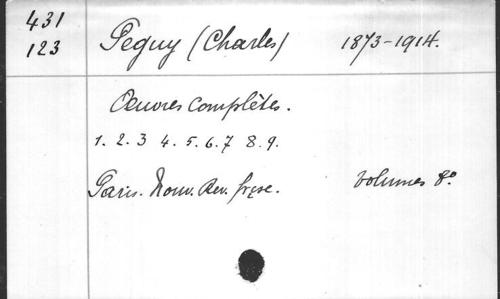 431
123
Peguy (Charles) 1873-1914.
Œuvres complètes.
1. 2. 3 4. 5. 6. 7 8. 9.
Paris. Nouv. Rev. frçse. Volumes 8°